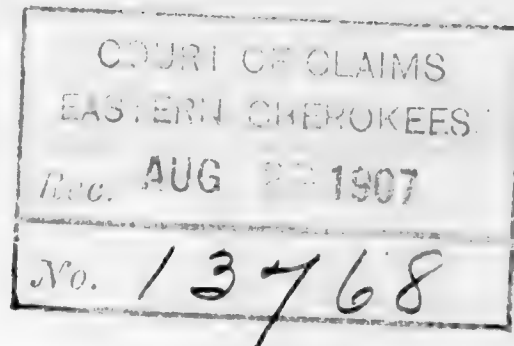 COURT OF CLAIMS
EASTERN CHEROKEES.
Rec. AUG 1907
No. 13768